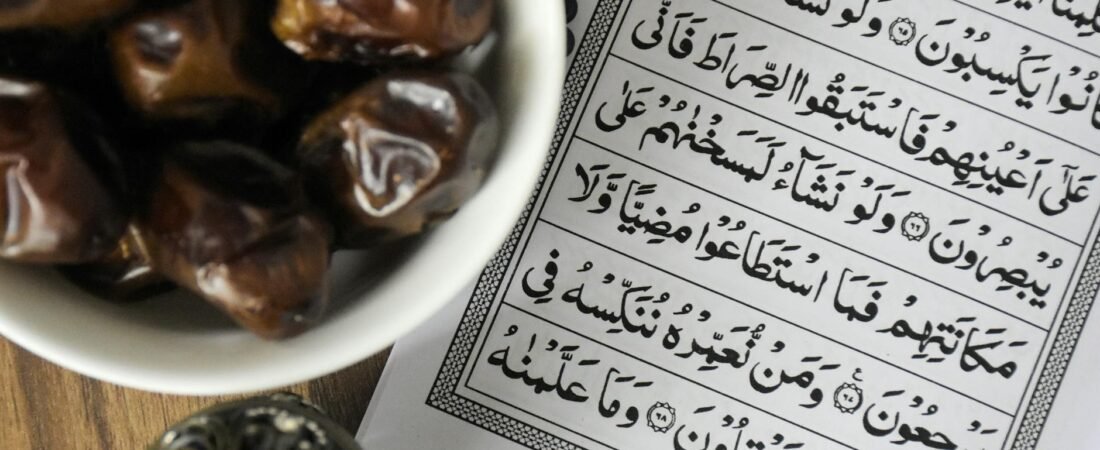 كَانُوْا يَكْسِبُوْنَ ﴿٦٥﴾ وَلَوْ
عَلٰۤى اَعْيُنِهِمْ فَاسْتَبَقُوا الصِّرَاطَ فَاَنّٰى
يُبْصِرُوْنَ ﴿٦٦﴾ وَلَوْ نَشَآءُ لَمَسَخْنٰهُمْ عَلٰى
مَكَانَتِهِمْ فَمَا اسْتَطَاعُوْا مُضِيًّا وَّلَا
يَرْجِعُوْنَ ﴿٦٧﴾ وَمَنْ نُّعَمِّرْهُ نُنَكِّسْهُ فِى
﴿٦٨﴾ وَمَا عَلَّمْنٰهُ